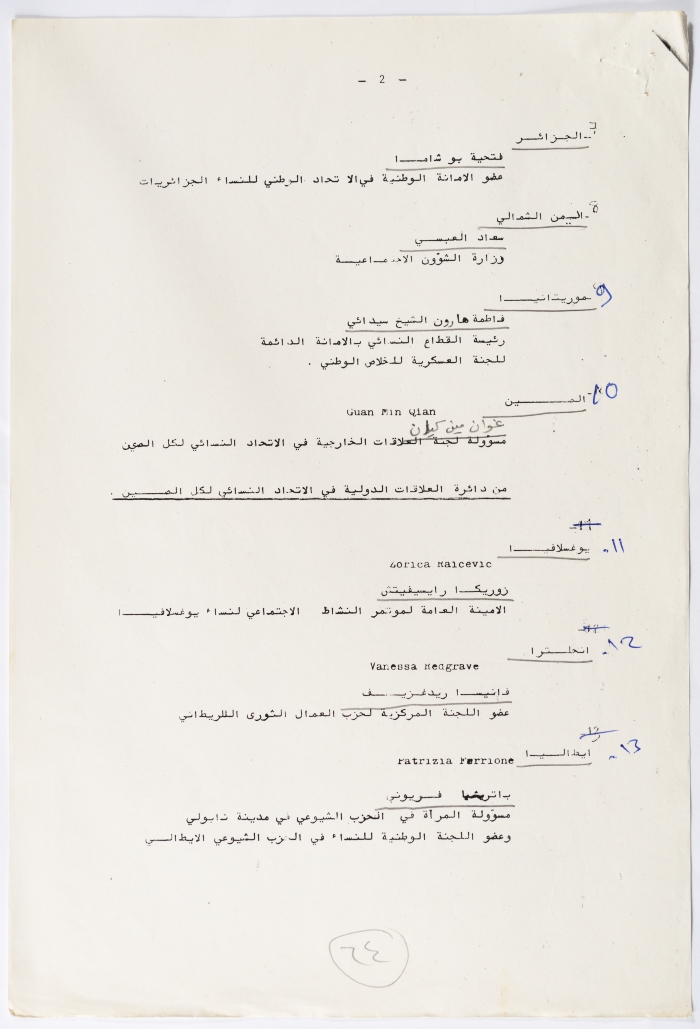 - 2 -
٧-الجزائـر
فتحية بو شامـــا
عضو الامانة الوطنية في الاتحاد الوطني للنساء الجزائريات
٨-اليمن الشمالي
سعاد العبسـي
وزارة الشؤون الاجتماعيـة
٩-موريتانيـــا
فاطمة هارون الشيخ سيدائي
رئيسة القطاع النسائي بالامانة الدائمة
للجنة العسكرية للخلاص الوطني .
10-الصـــــين
Guan Min Qian
غوان مين كيان
مسؤولة لجنة العلاقات الخارجية في الاتحاد النسائي لكل الصين
من دائرة العلاقات الدولية في الاتحاد النسائي لكل الصـــين .
11. يوغسلافيـــا
Zorica Raicevic
زوريكــا رايسفيتش
الامينة العامة لموتمر النشاط الاجتماعي لنساء يوغسلافيـــا
12. انجلـتـرا
Vanessa Redgrave
فانيسـا ريدغريــف
عضو اللجنة المركزية لحزب العمال الثورى البريطاني
13. ايطاليــا
Patrizia Ferrione
باتريشيا فـريوني
مسؤولة المرأة في الحزب الشيوعي في مدينة نابولي
وعضو اللجنة الوطنية للنساء في الحزب الشيوعي الايطالـي
٦٤